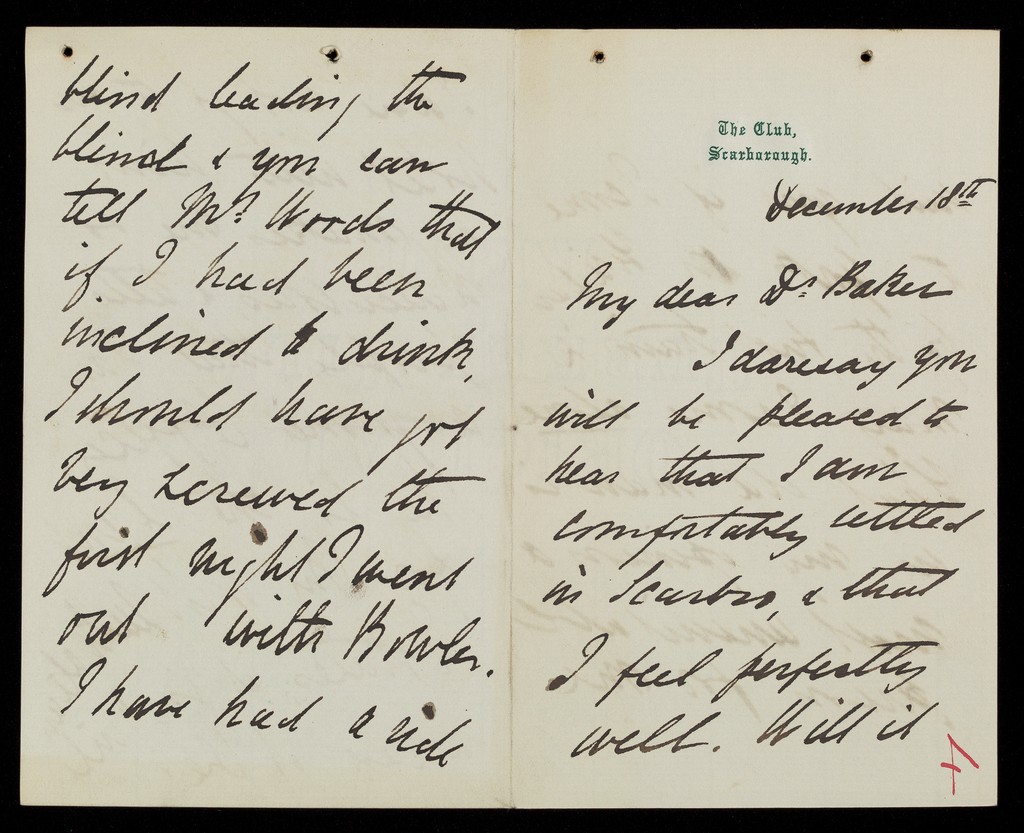 The Club,
Scarborough.
December 18th
My dear Dr Baker
I daresay you
will be pleased to
hear that I am
comfortably settled
in Scarbro, & that
I feel perfectly
well. Will it
4
blind leading the
blind & you can
tell Mrs Woods that
if I had been
inclined to drink,
I should have got
very screwed the
first night I went
out with Bowler.
I have had a ride